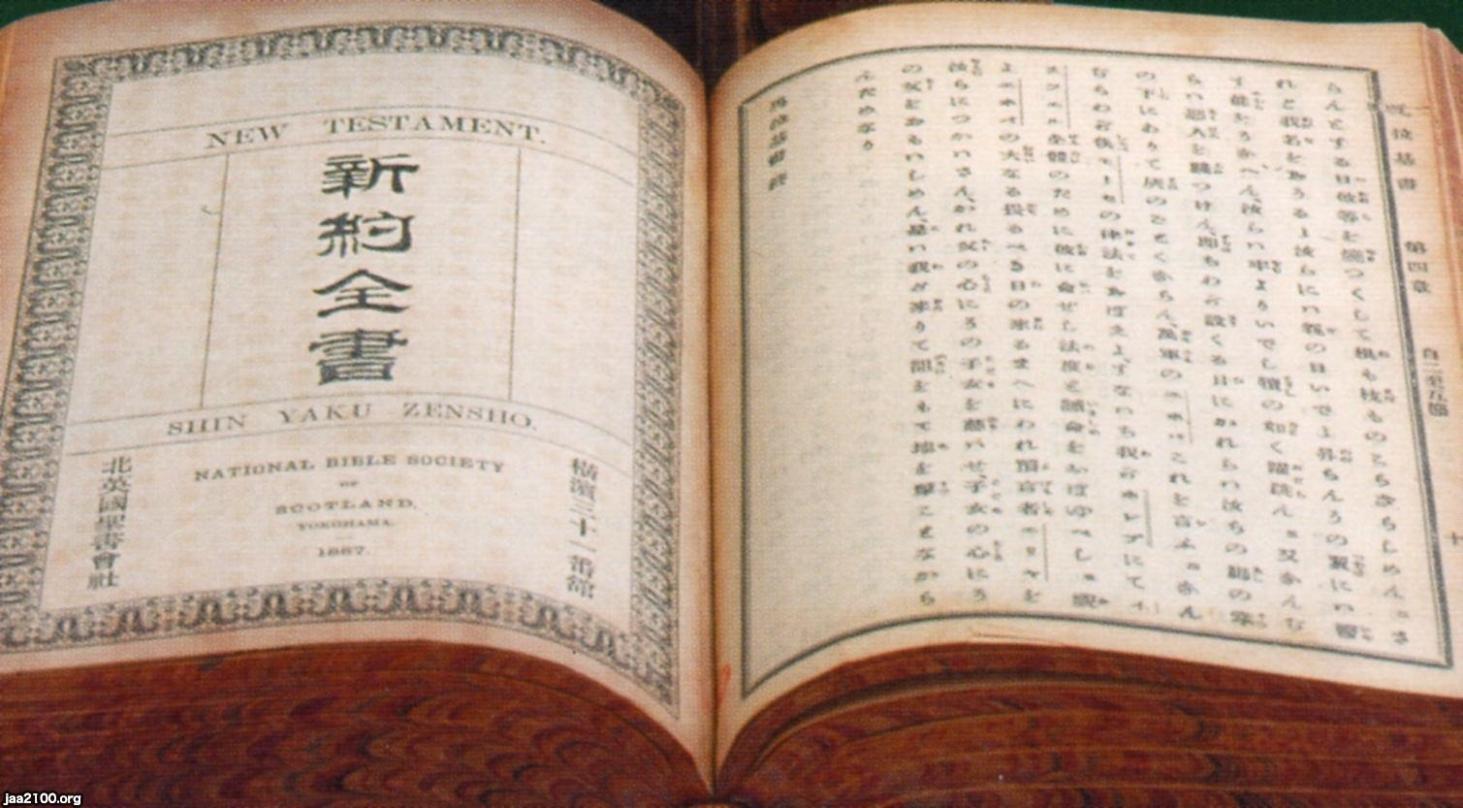 拉基書 第四章 自二至五節
らんとする日彼等を燒つくして根も枝ものこらざらしめん二さ
れど我名をおそるゝ汝らにハ義の日いでゝ昇らんその翼にハ醫
す能をそなへん汝らハ牢よりいでし犢の如く躍跳ん三又なんぢ
らハ惡人を踐つけん即ちわが設くる日にかれらハ汝らの脚の掌
の下にありて灰のごとくならん萬軍のヱホバこれを言ふ四なん
ぢらわが僕モーセの律法をおぼえよすなハち我がホレブにてイ
スラエル全體のために彼に命ぜし法度と誡命をおぼゆべし五視
よヱホバの大なる畏るべき日の來るまへにわれ預言者エリヤを
汝らにつかハさん六かれ父の心にその子女を慈ハせ子女の心にそ
の父をおもハしめん是ハ我が來りて詛をもて地を撃ことなから
んためなり
馬拉基書 終
NEW TESTAMENT.
新約全書
SHIN YAKU ZENSHO.
橫濱三十一番館
NATIONAL BIBLE SOCIETY
OF
SCOTLAND,
YOKOHAMA.
1887.
北英國聖書會社
jaa2100.org